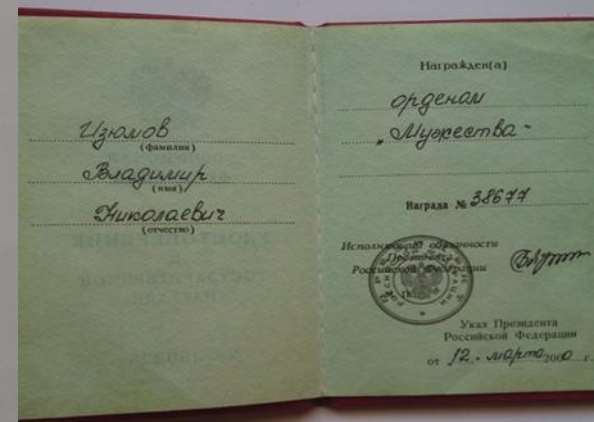 Изюмов
(фамилия)
Владимир
(имя)
Николаевич
(отчество)
Награжден(а)
орденом
„Мужества“
Награда № 38677
Исполняющий обязанности
Президента
Российской Федерации
Указ Президента
Российской Федерации
от 12 марта 2000 г.